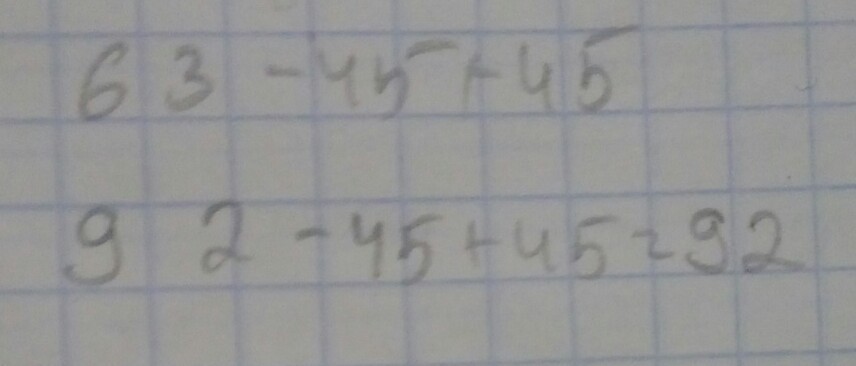 63 - 45 + 45
92 - 45 + 45 = 92